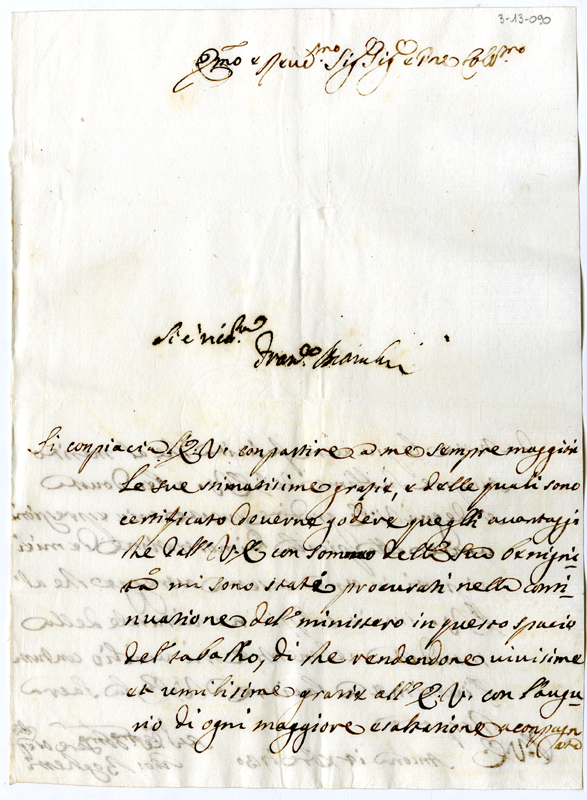 3-13-090
Em̃o e Reud.mo Sig.r Sig.r e Pne Coll.mo
Si è ricev.ta
Fran.co
Si conpiacia l'E: V. conpartire a me sempre maggiori
le sue stimatisime gratie, e delle quali sono
certificato doverne godere quegli avantaggi
che dall' V. E. con sommo della sua benigni-
tà mi sono state procurati nella conti-
nuatione del ministero in questo spacio
del tabacho, di che rendendone vivisime
et umilisime gratie all' E. V. con l'augu-
rio di ogni maggiore esaltatione aconpagn
ata